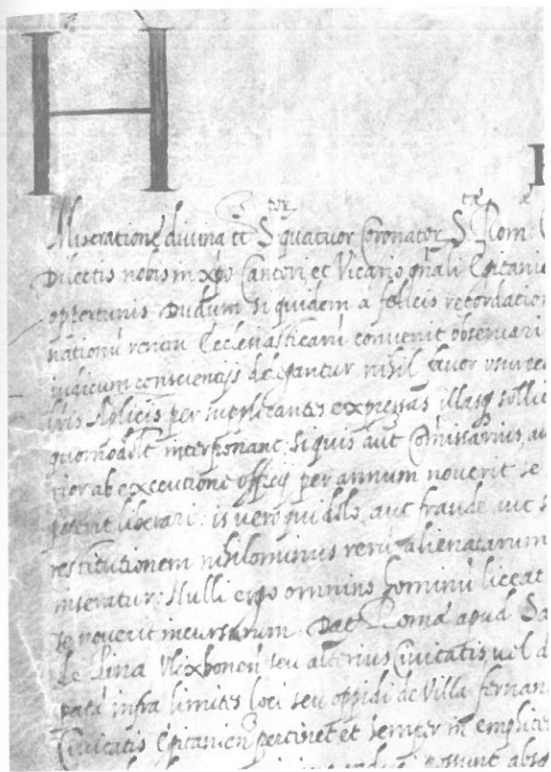 H
Miseratione divina tt S quatuor Coronator S Rom
Dilectis nobis in xpo Cantori et Vicario gnali Egitanie
oppertunis Dudum siquidem a felicis recordation
nationũ rerum Ecclesiasticarũ convenit observari
iudicum conscientijs delegantur nihil favor usurpe
per supplicantes expressas illasq sollic
quomodolt interponant siquis aut Comissarius, au
rior ab executione officij per annum noverit se
poterit liberari: is vero qui dolo, aut fraude aut s
restitutionem nihilominus rerũ alienatarum
miseratur: Nulli ergo omnino hominũ liceat
se noverit incursurum Dat Roma apud Sa
de Pina Vlixbonen seu alterius Civitatis, vel d
infra limites loci seu oppidi de Villa fernan
Civitatis Egitanien pertinet et semper in emphiteo
possunt abso